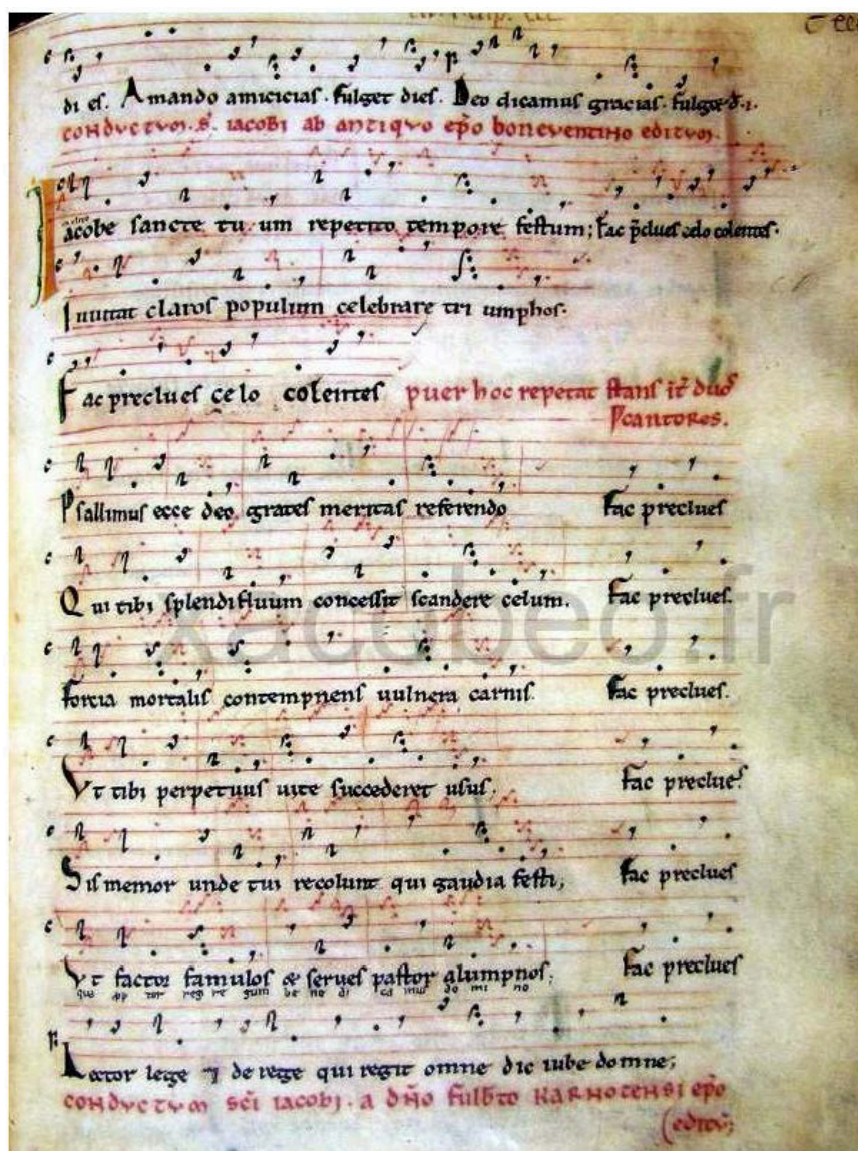 di es. Amando amicicias. fulget dies. Deo dicamus gracias. fulget d. i.
CONDUCTUM. S. IACOBI AB ANTIQUO EPO BONEVENTINO EDITUM.
Iacobe sancte tu um repetito tempore festum; fac pclues celo colentes.
Inuitat claros populum celebrare tri umphos.
Fac preclues ce lo colentes puer hoc repetat stans it duos
cantores.
Psallimus ecce deo grates meritas referendo fac preclues
Qui tibi splendifluum concessit scandere celum. fac preclues.
xacobeo.fr
forcia mortalis contempnens uulnera carnis fac preclues.
Ut tibi perpetuus uite succederet usus. fac preclues
Sis memor unde tui recolunt qui gaudia festi; fac preclues
Ut factor famulos & serues pastor alumpnos. fac preclues
re gum be ne di ca mus do mi no
Lector lege de rege qui regit omne dic iube domne;
CONDUCTUM SCI IACOBI. A DNO FULBTO KARNOTENSI EPO
(editu;